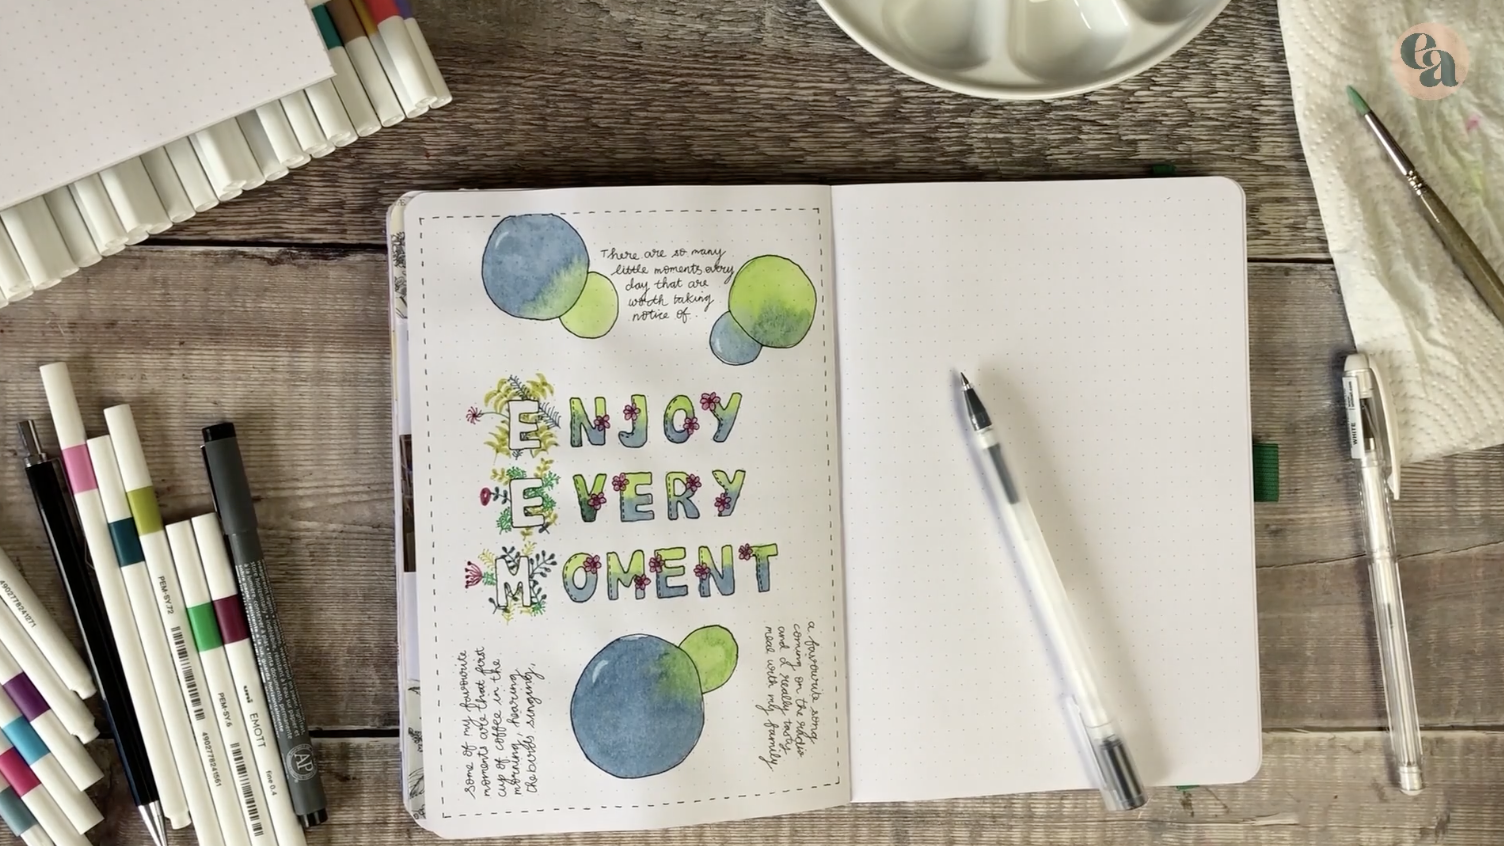 ea
There are so many
little moments every
day that are
worth taking
notice of.
ENJOY
EVERY
MOMENT
Some of my favourite
moments are that first
cup of coffee in the
morning, hearing
the birds singing,
a favourite song
coming on the radio
and a really tasty
meal with my family
WHITE
4902778241271
PEM-SY.72
4902778241561
PEM-SY.6
uni EMOTT
fine 0.4
AP